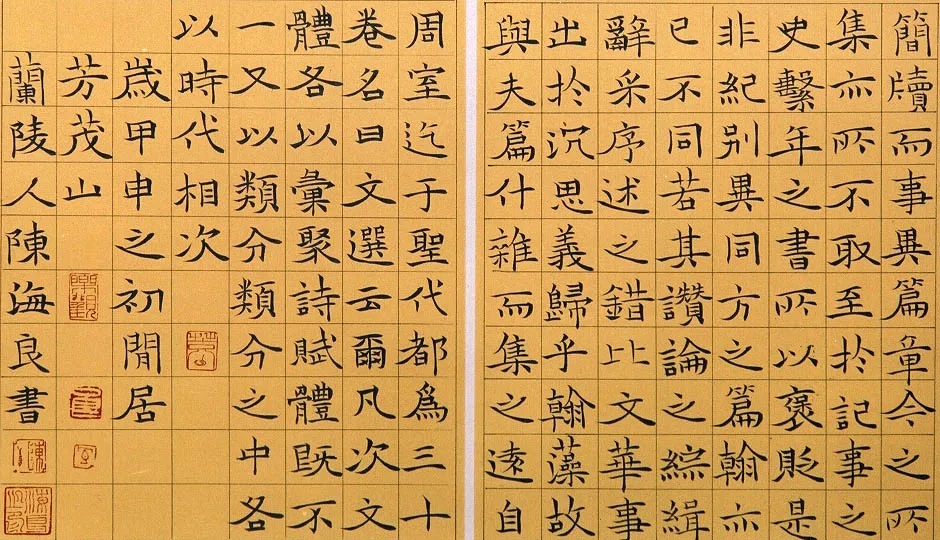 簡牘而事異篇章今之所
集亦所不取至於記事之
史繫年之書所以褒貶是
非紀别異同方之篇翰亦
已不同若其讚論之綜緝
辭采序述之錯比文華事
出於沉思義歸乎翰藻故
與夫篇什雜而集之遠自
周室迄于聖代都爲三十
卷名曰文選云爾凡次文
體各以彙聚詩賦體既不
一又以類分類分之中各
以時代相次
歲甲申之初閒居
芳茂山
蘭陵人陳海良書